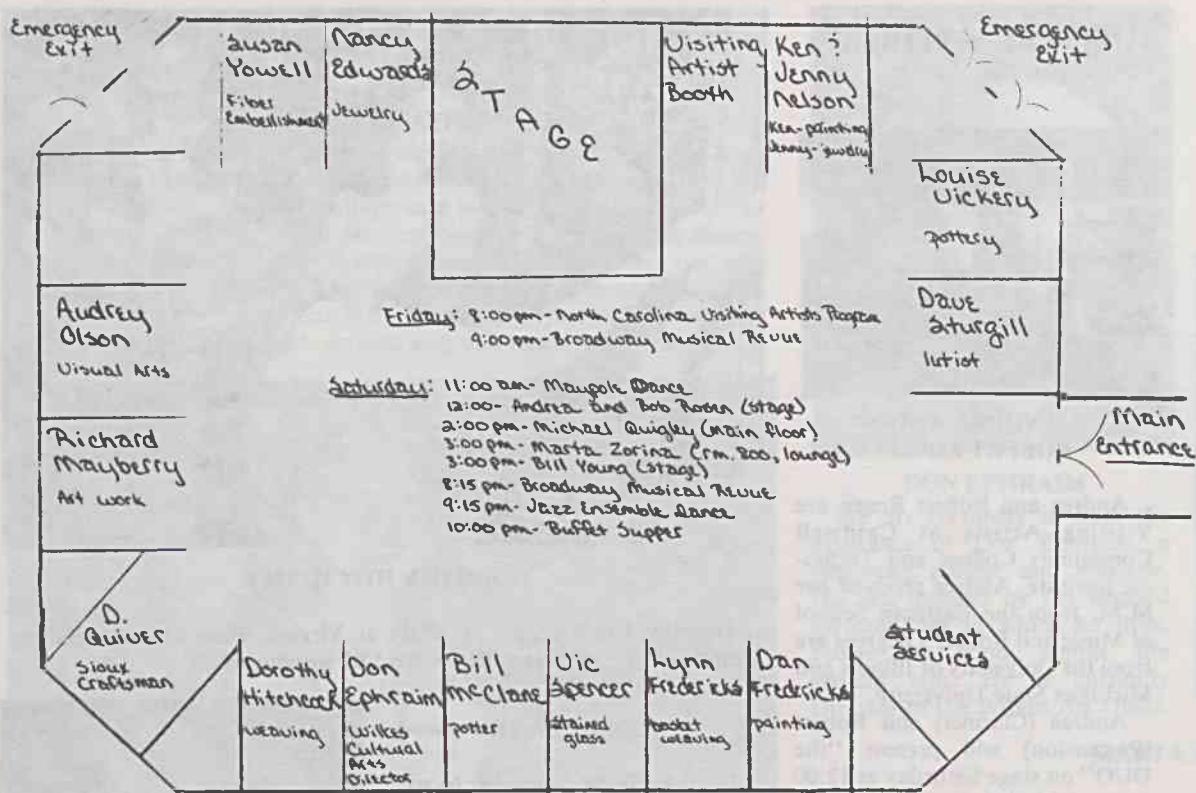 Emergency
Exit
Susan
Yowell
Fiber
Embellishment
Nancy
Edwards
Jewelry
STAGE
Visiting
Artist
Booth
Ken &
Jenny
Nelson
Ken-painting
Jenny-jewelry
Emergency
Exit
Louise
Vickery
pottery
Dave
Sturgill
lutist
Main
Entrance
Audrey
Olson
Visual Arts
Richard
Mayberry
Art work
Friday: 8:00pm- North Carolina Visiting Artists Program
9:00pm- Broadway Musical Revue
Saturday: 11:00 am- Maypole Dance
12:00- Andrea and Bob Rosen (stage)
2:00 pm- Michael Quigley (main floor)
3:00 pm- Marta Zorina (rm. 800, lounge)
3:00 pm- Bill Young (stage)
8:15 pm- Broadway Musical Revue
9:15 pm- Jazz Ensemble Dance
10:00 pm- Buffet Supper
D.
Quiver
Sioux
Craftsman
Dorothy
Hitchcock
weaving
Don
Ephraim
Wilkes
Cultural
Arts
Director
Bill
McClane
potter
Vic
Spencer
stained
glass
Lynn
Fredericks
basket
weaving
Dan
Fredericks
painting
Student
Services